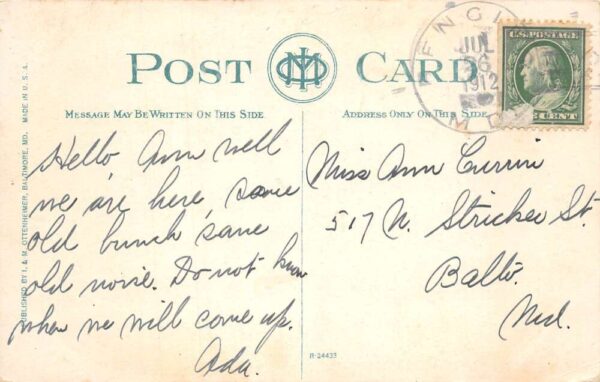 POST CARD
MESSAGE MAY BE WRITTEN ON THIS SIDE
ADDRESS ONLY ON THIS SIDE
JUL
6
1912
M
U.S. POSTAGE
CENT
Hello Ann well
we are here, same
old bunch same
old noise. Do not know
when we will come up.
Ada.
Miss Ann Currin
517 N. Stricker St.
Balto.
Md.
PUBLISHED BY I. & M. OTTENHEIMER, BALTIMORE, MD. MADE IN U.S.A.
R-24433